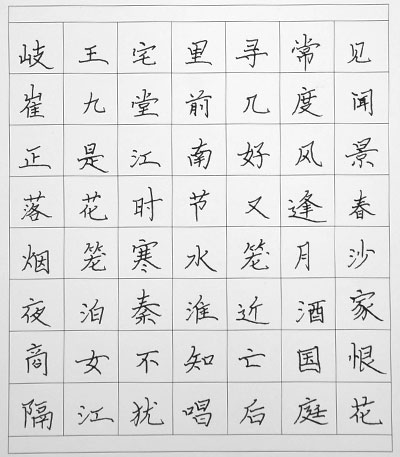 岐王宅里寻常见
崔九堂前几度闻
正是江南好风景
落花时节又逢春
烟笼寒水笼月沙
夜泊秦淮近酒家
商女不知亡国恨
隔江犹唱后庭花